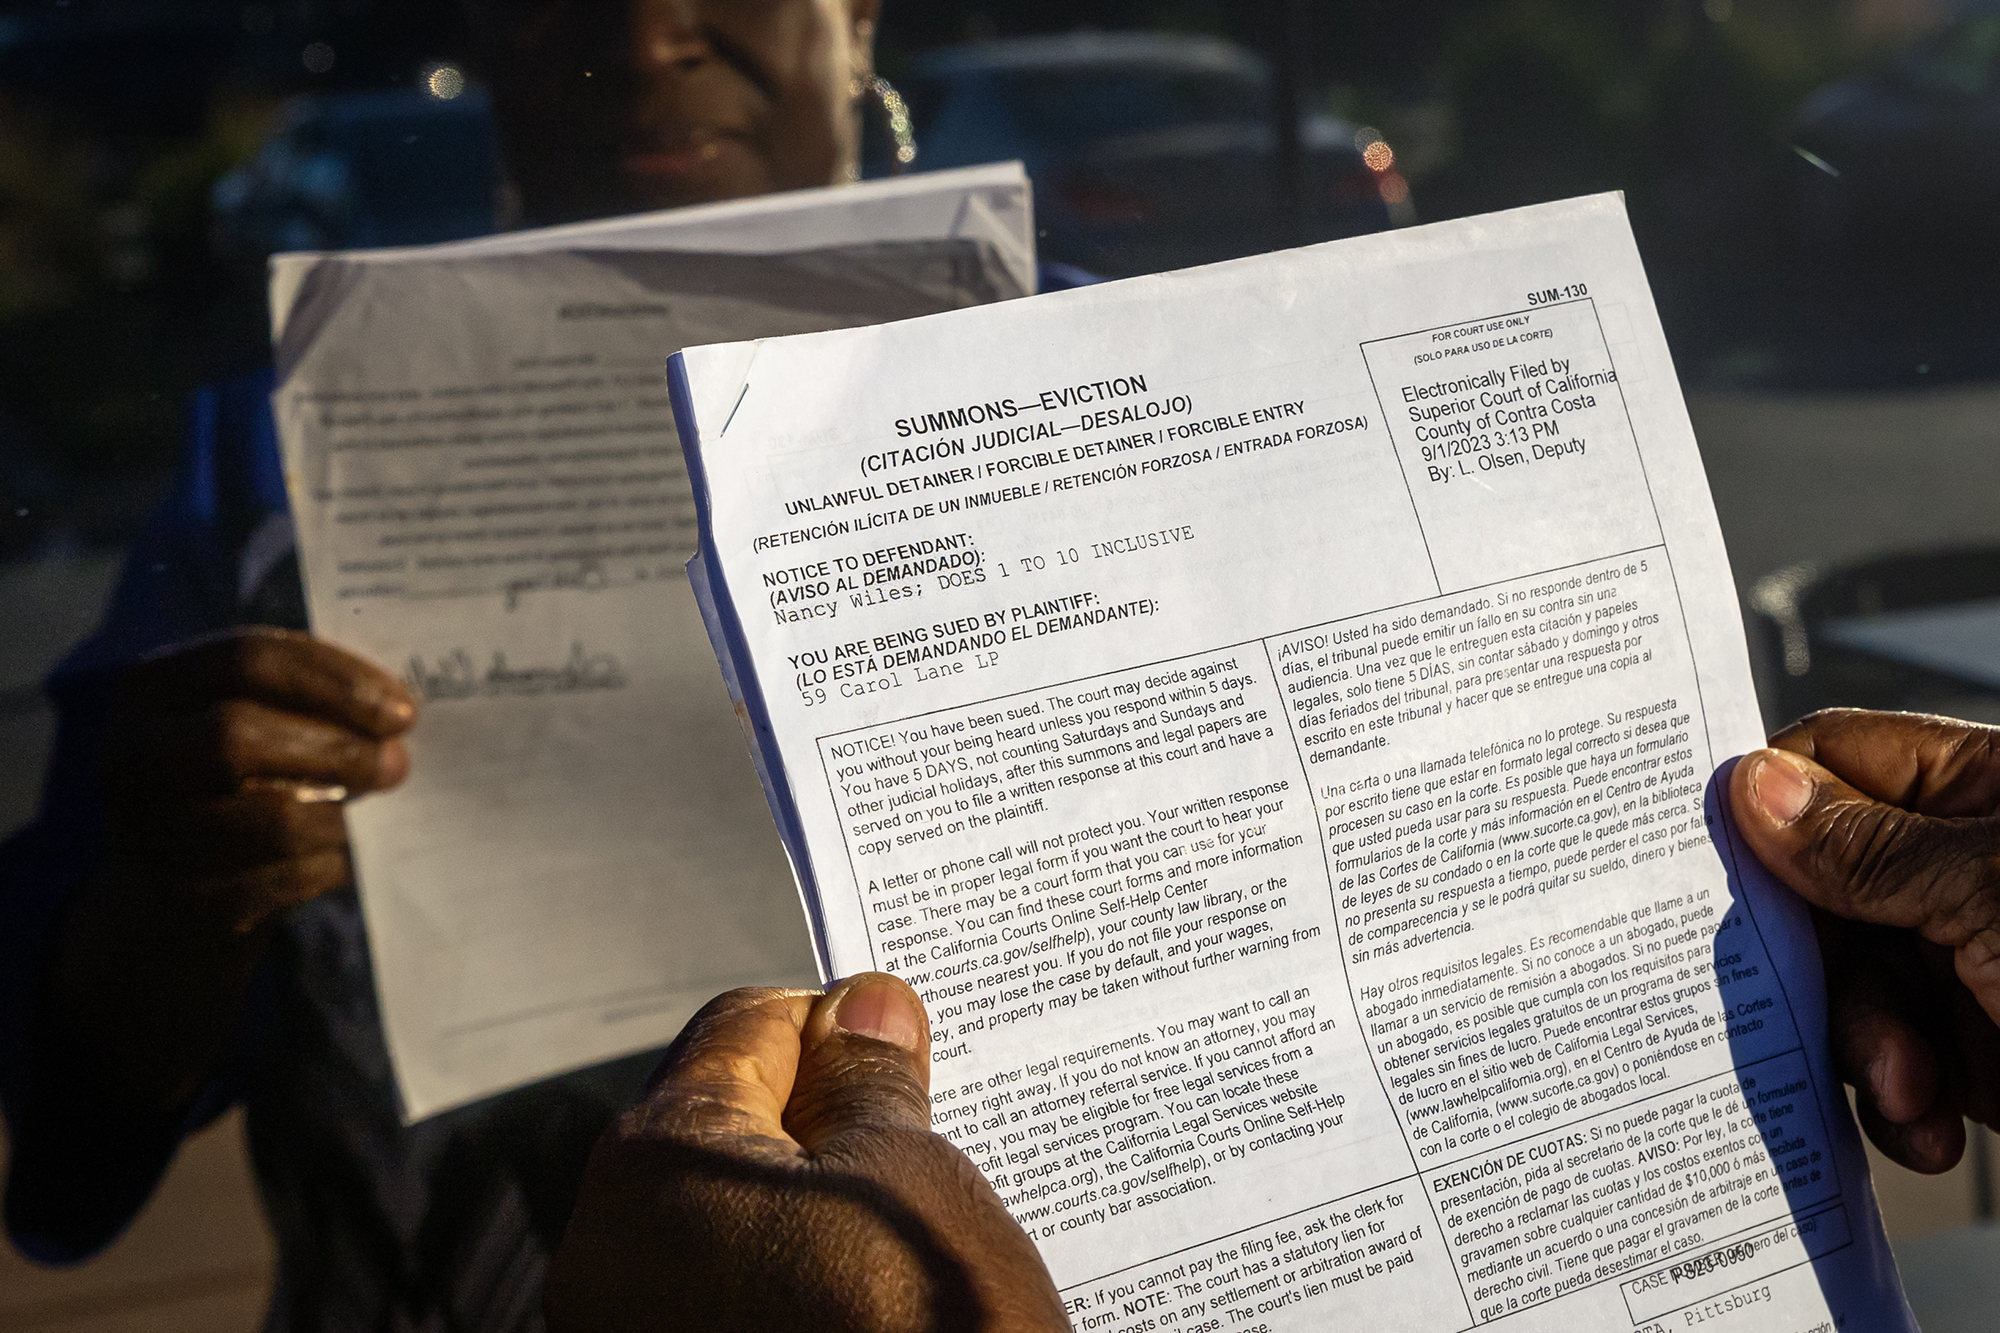 SUM-130
SUMMONS—EVICTION
(CITACIÓN JUDICIAL—DESALOJO)
UNLAWFUL DETAINER / FORCIBLE DETAINER / FORCIBLE ENTRY
(RETENCIÓN ILÍCITA DE UN INMUEBLE / RETENCIÓN FORZOSA / ENTRADA FORZOSA)
FOR COURT USE ONLY
(SOLO PARA USO DE LA CORTE)
Electronically Filed by
Superior Court of California
County of Contra Costa
9/1/2023 3:13 PM
By: L. Olsen, Deputy
NOTICE TO DEFENDANT:
(AVISO AL DEMANDADO):
Nancy Wiles; DOES 1 TO 10 INCLUSIVE
YOU ARE BEING SUED BY PLAINTIFF:
(LO ESTÁ DEMANDANDO EL DEMANDANTE):
59 Carol Lane LP
NOTICE! You have been sued. The court may decide against
you without your being heard unless you respond within 5 days.
You have 5 DAYS, not counting Saturdays and Sundays and
other judicial holidays, after this summons and legal papers are
served on you to file a written response at this court and have a
copy served on the plaintiff.
A letter or phone call will not protect you. Your written response
must be in proper legal form if you want the court to hear your
case. There may be a court form that you can use for your
response. You can find these court forms and more information
at the California Courts Online Self-Help Center
www.courts.ca.gov/selfhelp), your county law library, or the
rthouse nearest you. If you do not file your response on
, you may lose the case by default, and your wages,
ey, and property may be taken without further warning from
court.
ere are other legal requirements. You may want to call an
torney right away. If you do not know an attorney, you may
nt to call an attorney referral service. If you cannot afford an
ney, you may be eligible for free legal services from a
ofit legal services program. You can locate these
fit groups at the California Legal Services website
awhelpca.org), the California Courts Online Self-Help
www.courts.ca.gov/selfhelp), or by contacting your
rt or county bar association.
¡AVISO! Usted ha sido demandado. Si no responde dentro de 5
días, el tribunal puede emitir un fallo en su contra sin una
audiencia. Una vez que le entreguen esta citación y papeles
legales, solo tiene 5 DÍAS, sin contar sábado y domingo y otros
días feriados del tribunal, para presentar una respuesta por
escrito en este tribunal y hacer que se entregue una copia al
demandante.
Una carta o una llamada telefónica no lo protege. Su respuesta
por escrito tiene que estar en formato legal correcto si desea que
procesen su caso en la corte. Es posible que haya un formulario
que usted pueda usar para su respuesta. Puede encontrar estos
formularios de la corte y más información en el Centro de Ayuda
de las Cortes de California (www.sucorte.ca.gov), en la biblioteca
de leyes de su condado o en la corte que le quede más cerca. Si
no presenta su respuesta a tiempo, puede perder el caso por falta
de comparecencia y se le podrá quitar su sueldo, dinero y bienes
sin más advertencia.
Hay otros requisitos legales. Es recomendable que llame a un
abogado inmediatamente. Si no conoce a un abogado, puede
llamar a un servicio de remisión a abogados. Si no puede pagar a
un abogado, es posible que cumpla con los requisitos para
obtener servicios legales gratuitos de un programa de servicios
legales sin fines de lucro. Puede encontrar estos grupos sin fines
de lucro en el sitio web de California Legal Services,
(www.lawhelpcalifornia.org), en el Centro de Ayuda de las Cortes
de California, (www.sucorte.ca.gov) o poniéndose en contacto
con la corte o el colegio de abogados local.
ER: If you cannot pay the filing fee, ask the clerk for
r form. NOTE: The court has a statutory lien for
costs on any settlement or arbitration award of
il case. The court's lien must be paid
se.
EXENCIÓN DE CUOTAS: Si no puede pagar la cuota de
presentación, pida al secretario de la corte que le dé un formulario
de exención de pago de cuotas. AVISO: Por ley, la corte tiene
derecho a reclamar las cuotas y los costos exentos con un
gravamen sobre cualquier cantidad de $10,000 ó más recibida
mediante un acuerdo o una concesión de arbitraje en un caso de
derecho civil. Tiene que pagar el gravamen de la corte antes de
que la corte pueda desestimar el caso.
CASE del caso)
Pittsburg